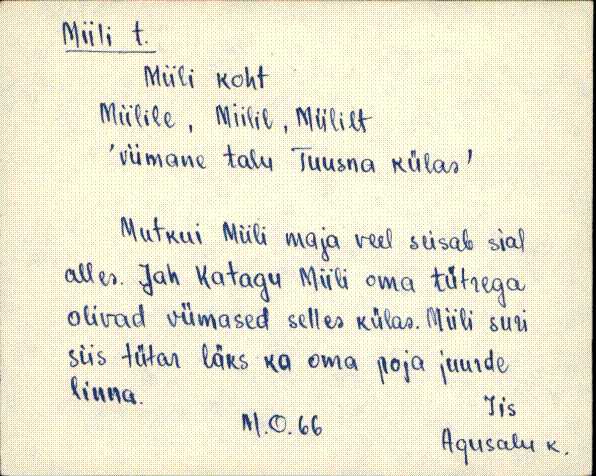 Miili t.
Miili koht
Miilile, Miilil, Miililt
'viimane talu Tuusna külas'
Mutkui Miili maja veel seisab sial
alles. Jah Katagu Miili oma tütrega
olivad viimased selles külas. Miili suri
siis tütar läks ka oma poja juurde
linna.
Iis
M.O.66
Agusalu k.